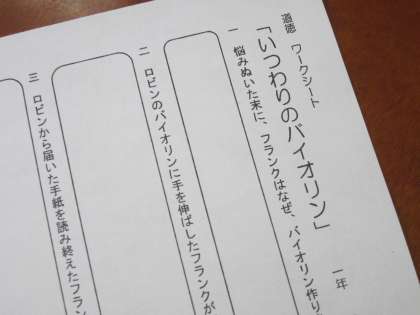 道徳 ワークシート
「いつわりのバイオリン」
一年
一 悩みぬいた末に、フランクはなぜ、バイオリン作り
二 ロビンのバイオリンに手を伸ばしたフランクが
三 ロビンから届いた手紙を読み終えたフラン